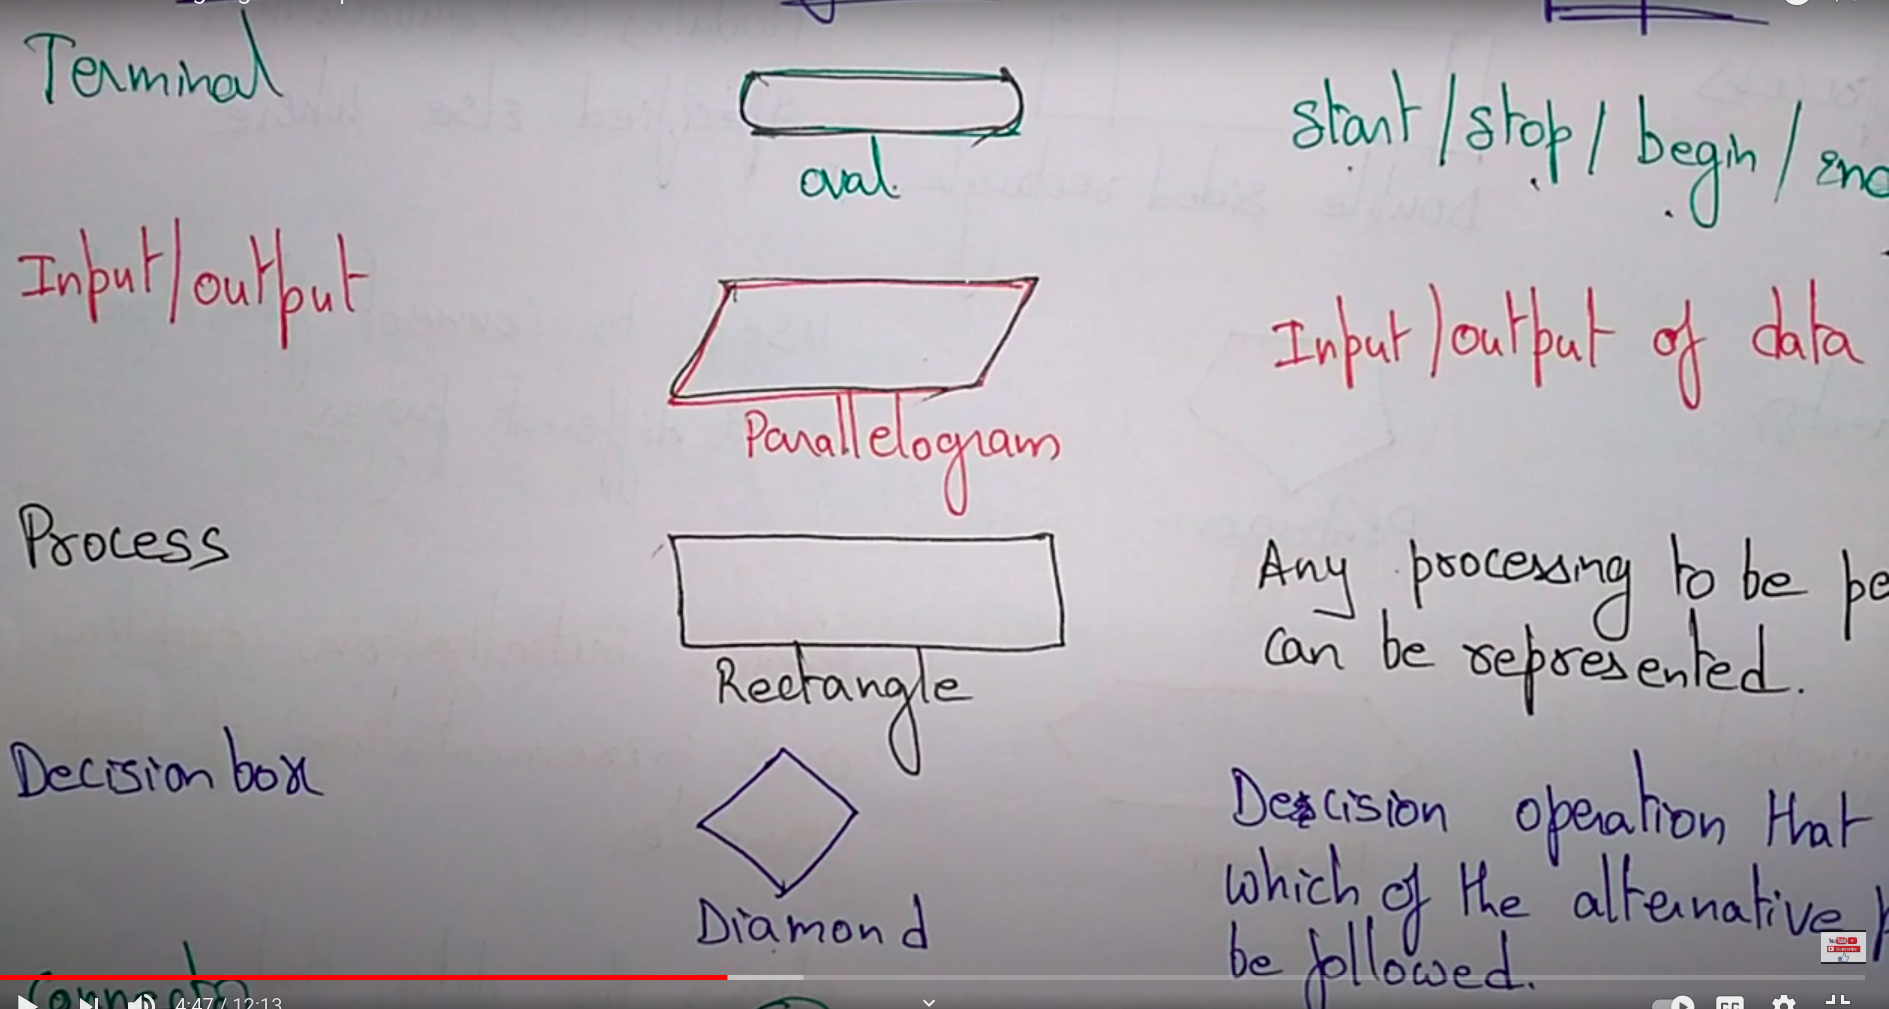 Terminal
oval
start/stop/begin/end
Input/output
Parallelogram
Input/output of data
Process
Rectangle
Any processing to be pe
can be represented.
Decision box
Diamond
Decision operation that
which of the alternative p
be followed.
4:47 / 12:13